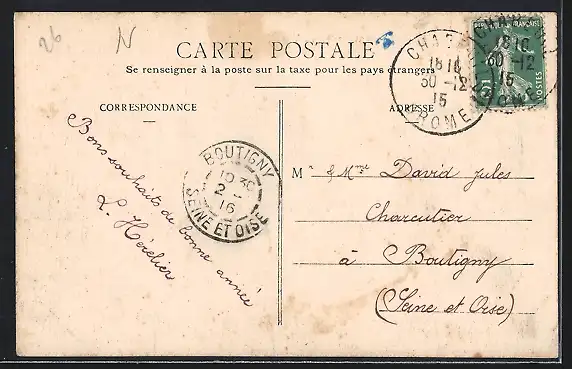 26
N
CARTE POSTALE
Se renseigner à la poste sur la taxe pour les pays étrangers
CORRESPONDANCE
ADRESSE
18 10
30 -12
15
DROME
POSTES
BOUTIGNY
10 30
2 -
16
SEINE ET OISE
Bons souhaits de bonne année
L. Hérelier
Mr & Mme David Jules
Charcutier
à Boutigny
(Seine et Oise)